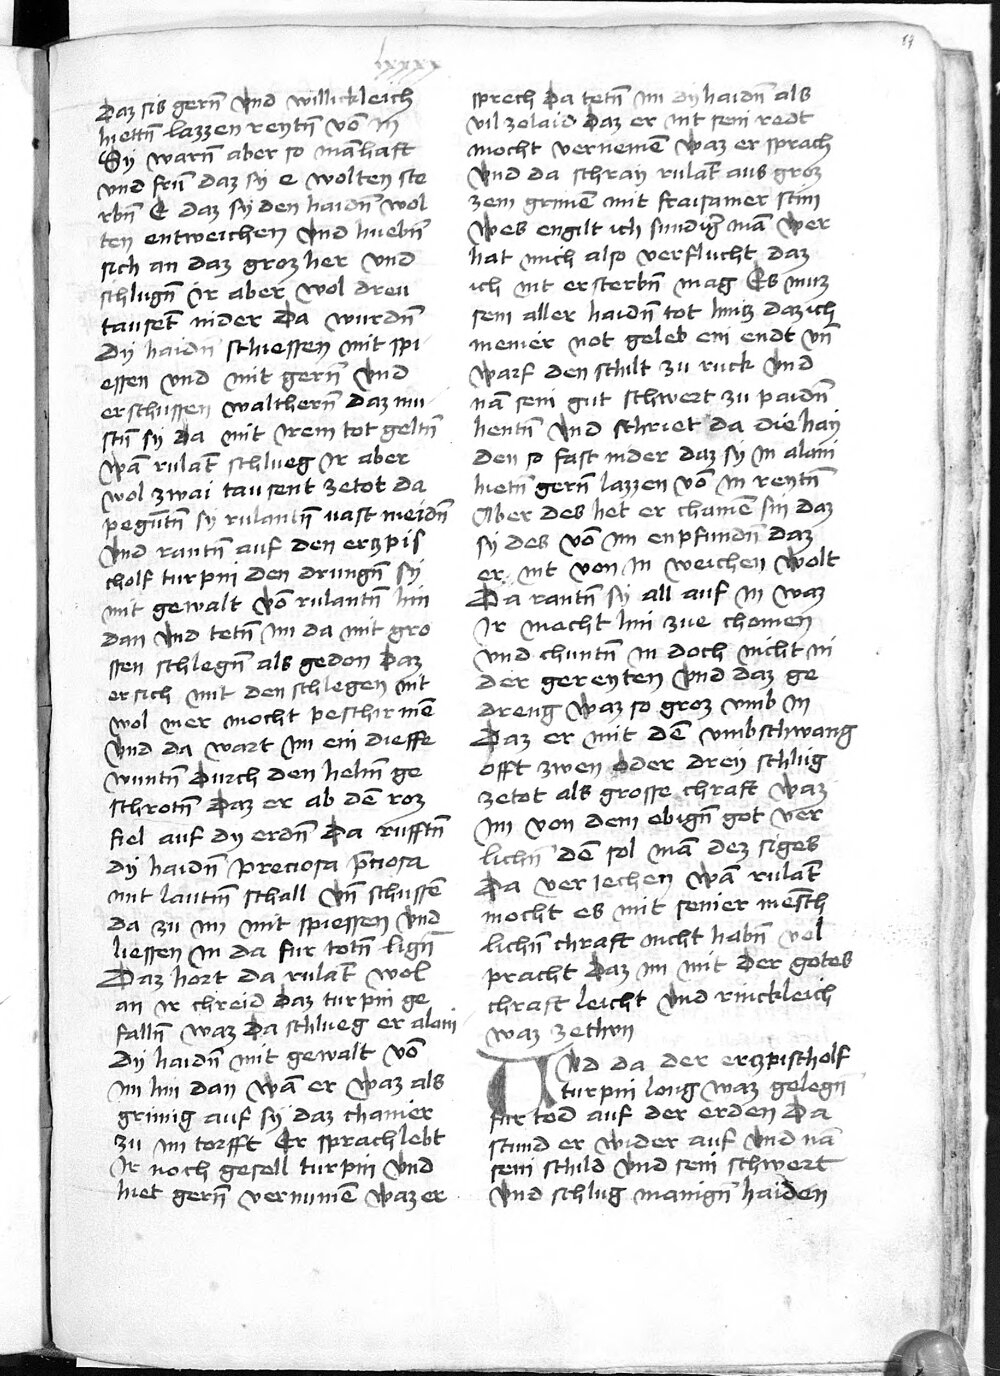 lxxxx
Daz sis gern̄ vnd willickleich
hiettn̄ lazzen reytn̄ vō in
Sy warn̄ aber so mānhaft
vnd frū daz sy e wolten ste
rbn̄ E daz sy den haidn̄ wol
ten entweichen vnd huebn̄
sich an daz groz her vnd
schlugn̄ Ir aber wol dreu
tausēt nider Da wurdn̄
Dy haidn̄ schiessen mit spi
essen vnd mit gern̄ vnd
erschussen walthern̄ daz mu
stn̄ sy da mit irem tot geltn̄
wā rulāt schlueg Ir aber
wol zwai tausent zetot da
peguntn̄ sy rulantn̄ vast meidn̄
vnd rantn̄ auf den erczpis
cholf turpin den drungn̄ sy
mit gewalt vō rulantn̄ hin
dan vnd tetn̄ im da mit gro
ssen schlegn̄ als gedon Daz
er sich mit den schlegen nit
wol mer mocht peschirmē
vnd da wart im ein dieffe
wuntn̄ durch den helm̄ ge
schrotn̄ Daz er ab dē roz
fiel auf dy erdn̄ Da rufftn̄
dy haidn̄ preciosa p̄ciosa
mit lautm̄ schall vn̄ schussē
da zu im mit spiessen vnd
liessen in da fur totn̄ lign̄
Daz hort da rulāt wol
an ir chreid Daz turpin ge
falln̄ waz Da schlueg er alain
dy haidn̄ mit gewalt vō
im hin dan wā er waz als
grimig auf sy daz chainer
zu im torfft Er sprach lebt
Ir noch gesell turpin vnd
hiet gern̄ vernumē waz er
sprech Da tetn̄ im dy haidn̄ als
vil zelaid Daz er nit sein redt
mocht vernemē waz er sprach
vnd da schray rulāt aus groz
zem grimē mit fraisamer stim
wes engilt ich sundig̓ mā wer
hat mich also verflucht daz
ich nit ersterbn̄ mag Es muz
sein aller haidn̄ tot hincz daz ich
meiner not geleb ein endt vn̄
warf den schilt zu ruck vnd
nā sein gut schwert zu paidn̄
hentn̄ vnd schriet da die hay
den so fast nider daz sy in alain
hietn̄ gern̄ lazzen vō in reytn̄
Aber des het er chainē sin daz
sy des vō im enpfundn̄ daz
er nit von in weichen wolt
Da rantn̄ sy all auf in waz
Ir mocht hin zue chomen
vnd chuntn̄ in doch nicht ni
der gereyten vnd daz ge
dreng waz so groz vmb in
Daz er mit dē vmbschwang
offt zwen oder drey schlug
zetot als grosse chraft waz
im von dem ebign̄ got ver
lichn̄ dē sol mā dez siges
Da veriechen wā rulāt
mocht es mit seiner mēsch
lichn̄ chraft nicht habn̄ vol
pracht Daz im mit der gotes
chraft leicht vnd rinckleich
waz zethun
Vnd da der erczpischolf
turpin long waz gelegn̄
fur tod auf der erden Da
stund er wider auf vnd nā
sein schild vnd sein schwert
vnd schlug manign̄ haiden